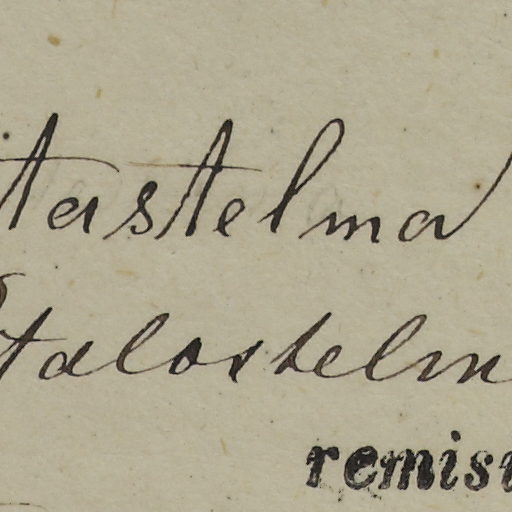 tastelma
Petalostelm
remisi